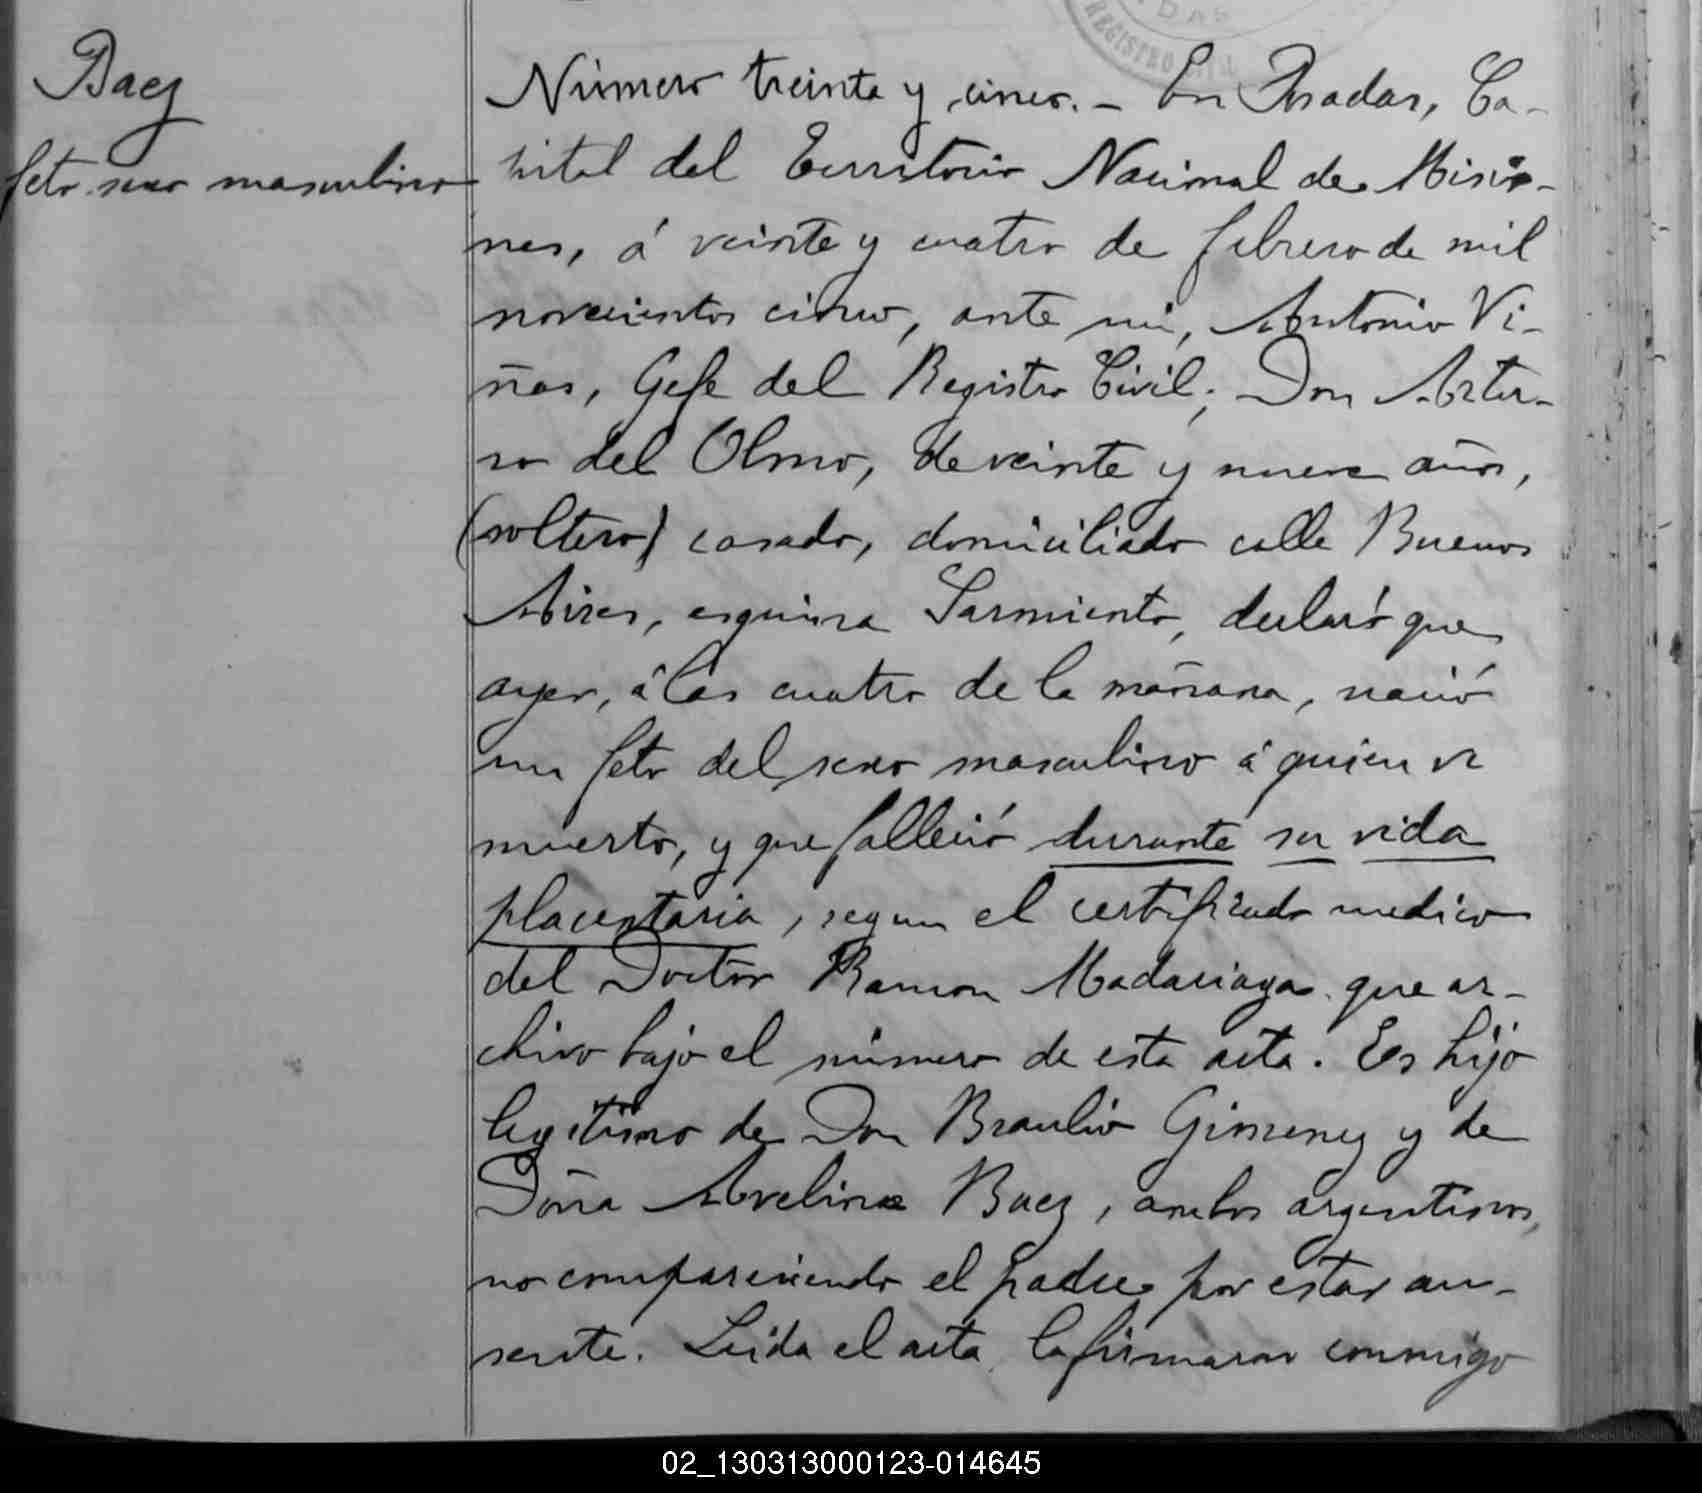 Baez
feto sexo masculino
REGISTRO
Número treinta y cinco. - En Posadas, Ca-
pital del Territorio Nacional de Misio-
nes, á veinte y cuatro de febrero de mil
novecientos cinco, ante mi, Antonio Vi-
ñas, Gefe del Registro Civil; Don Artu-
ro del Olmo, de veinte y nueve años,
(soltero) casado, domiciliado calle Buenos
Aires, esquina Sarmiento, declaró que
ayer, á las cuatro de la mañana, nació
un feto del sexo masculino á quien vi
muerto, y que falleció durante su vida
placentaria, segun el certificado medico
del Doctor Ramon Madariaga que ar-
chivo bajo el número de esta acta. Es hijo
legitimo de Don Braulio Gimenez y de
Doña Avelina Baez, ambos argentinos,
no compareciendo el padre por estar au-
sente. Leida el acta la firmaron conmigo
02_130313000123-014645